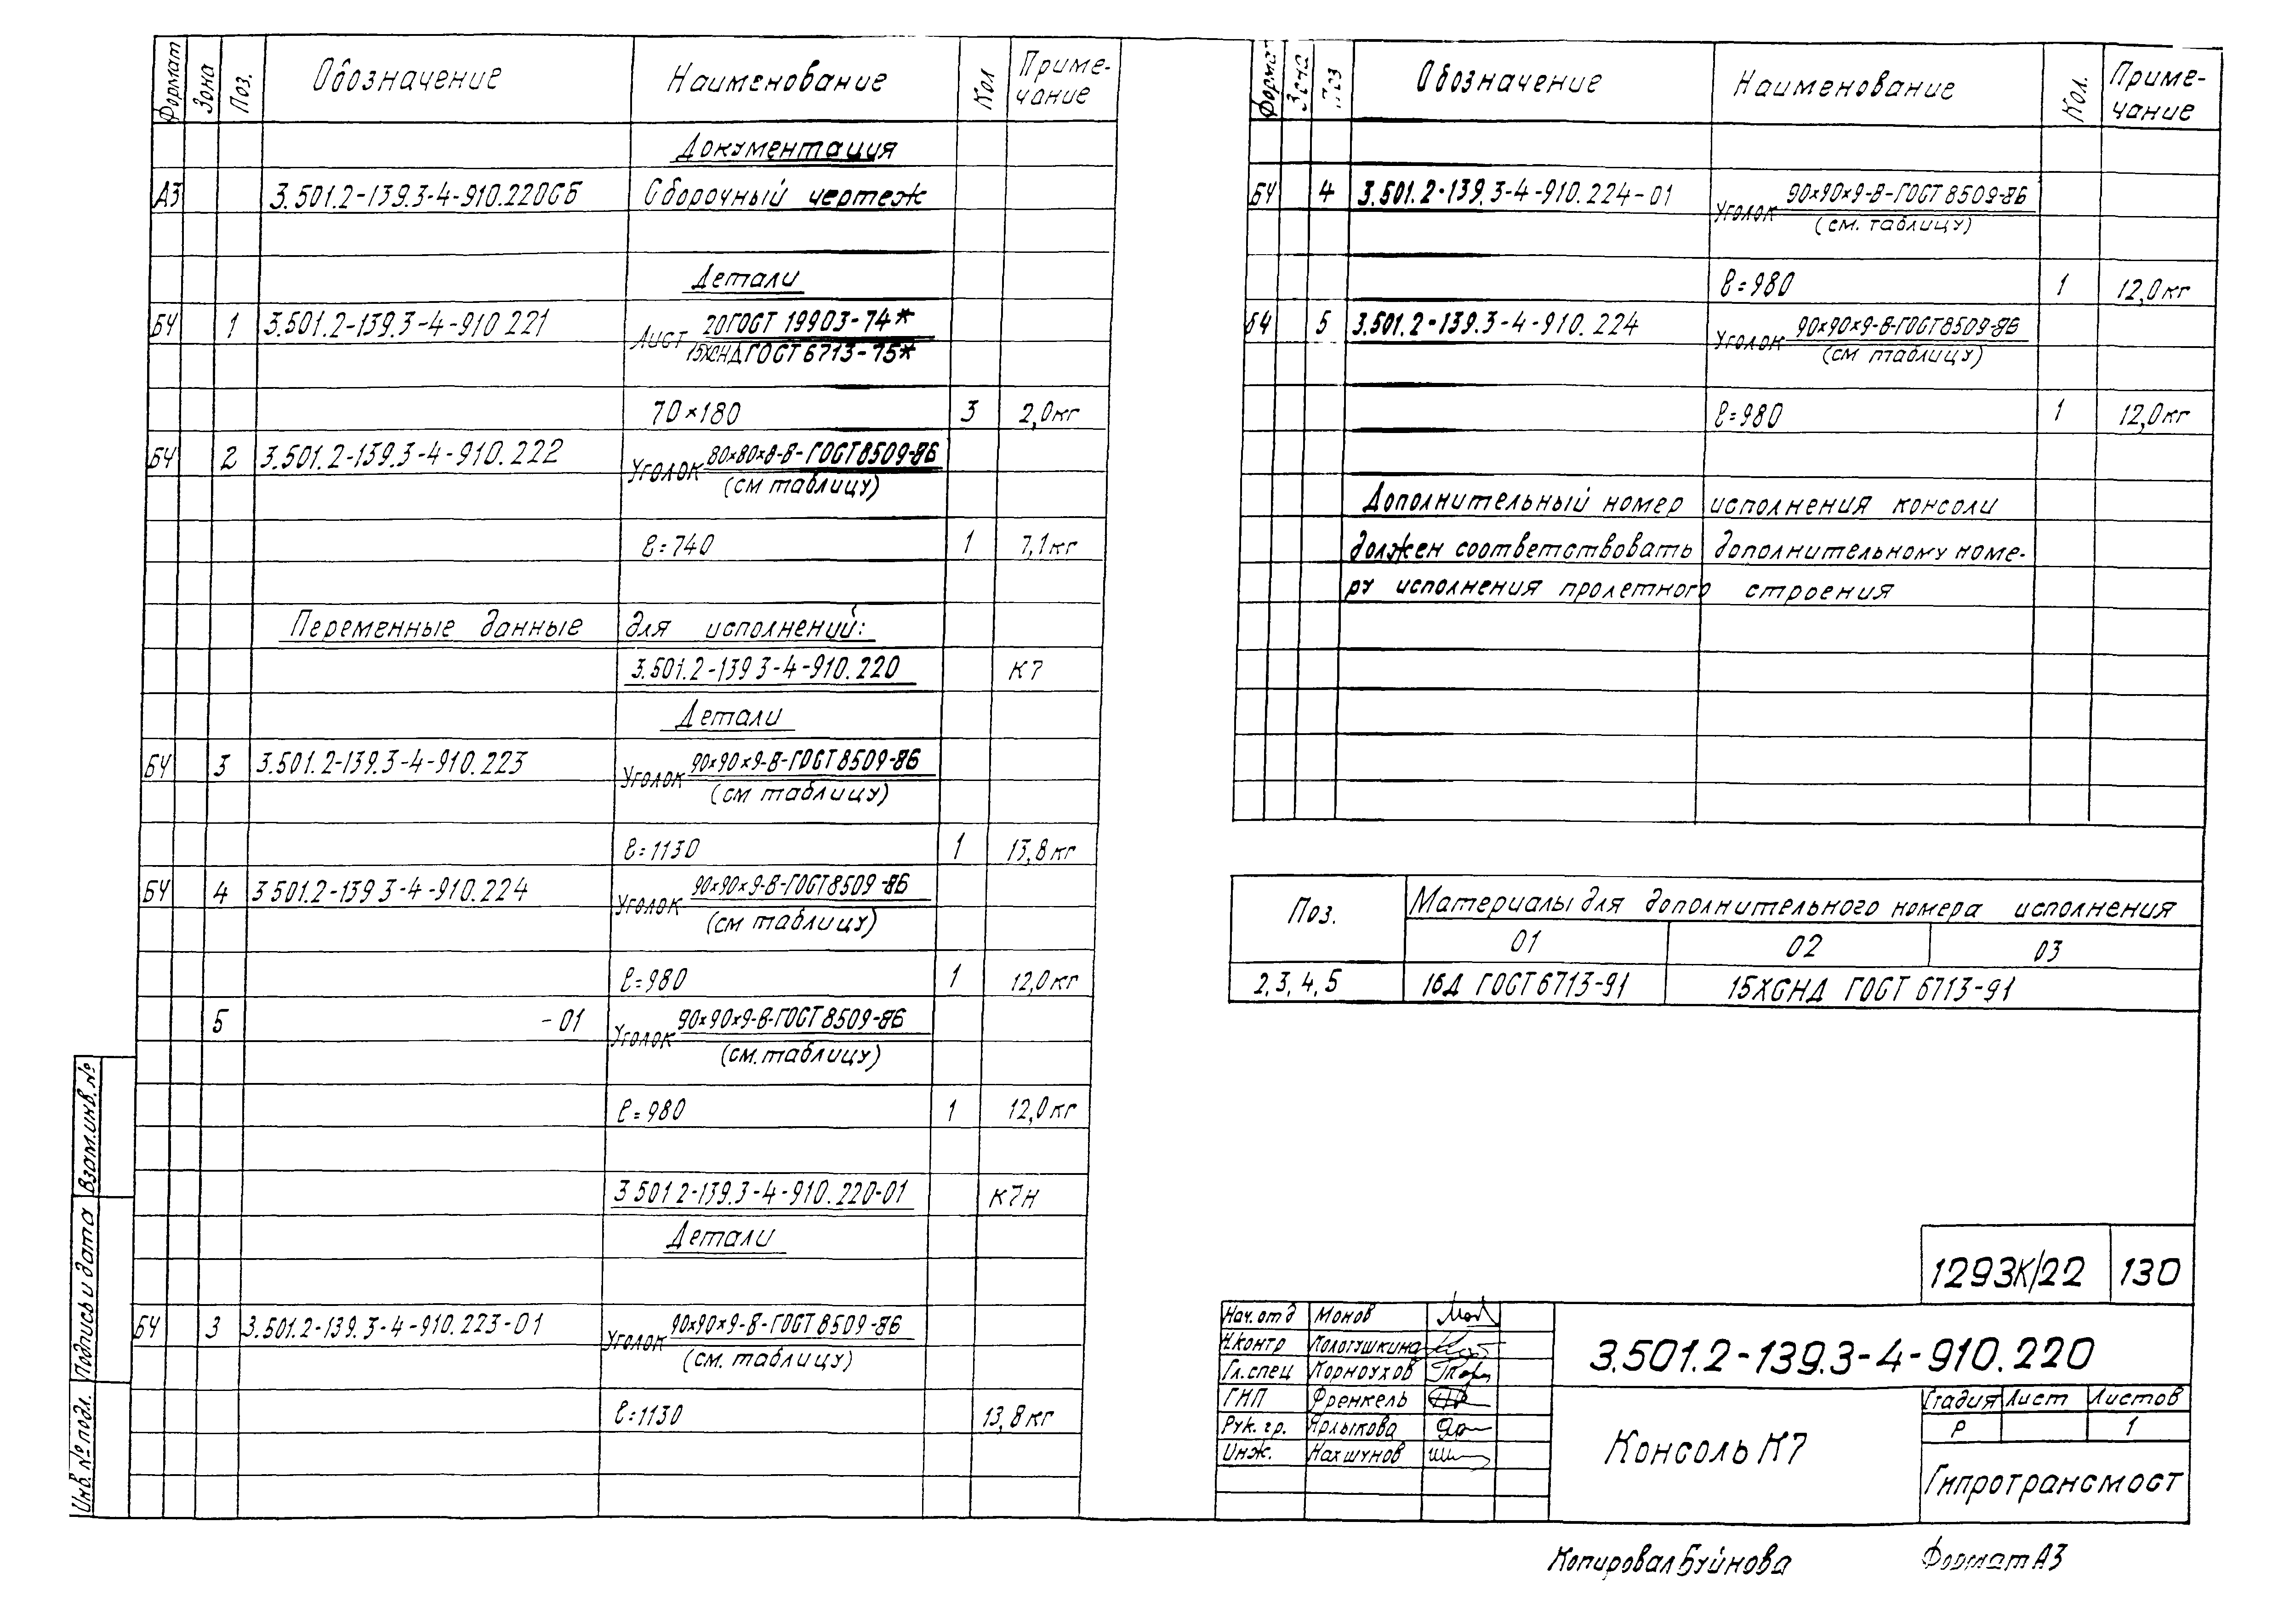 Формат Зона Поз. Обозначение Наименование Кол Приме-
чание
Документация
А3 3.501.2-139.3-4-910.220СБ Сборочный чертеж
Детали
БЧ 1 3.501.2-139.3-4-910 221 Лист 20ГОСТ 19903-74*
15ХСНД ГОСТ 6713-75*
70×180 3 2,0кг
БЧ 2 3.501.2-139.3-4-910.222 Уголок 80×80×8-В-ГОСТ8509-86
(см таблицу)
ℓ=740 1 7,1кг
Переменные данные для исполнений:
3.501.2-139 3-4-910.220 К7
Детали
БЧ 3 3.501.2-139.3-4-910.223 Уголок 90×90×9-В-ГОСТ8509-86
(см таблицу)
ℓ=1130 1 13,8кг
БЧ 4 3 501.2-139 3-4-910.224 Уголок 90×90×9-В-ГОСТ8509-86
(см таблицу)
ℓ=980 1 12,0кг
5 -01 Уголок 90×90×9-В-ГОСТ8509-86
(см.таблицу)
ℓ=980 1 12,0кг
3 501 2-139.3-4-910.220-01 К7Н
Детали
БЧ 3 3.501.2-139.3-4-910.223-01 Уголок 90×90×9-В-ГОСТ8509-86
(см. таблицу)
ℓ=1130 13,8кг
Взам.инв.№
Подпись и дата
Инв.№ подл.
Формат Зона Поз Обозначение Наименование Кол. Приме-
чание
БЧ 4 3.501.2-139.3-4-910.224-01 Уголок 90×90×9-В-ГОСТ8509-86
(см. таблицу)
ℓ=980 1 12,0кг
БЧ 5 3.501.2-139.3-4-910.224 Уголок 90×90×9-В-ГОСТ8509-86
(см таблицу)
ℓ=980 1 12,0кг
Дополнительный номер исполнения консоли
должен соответствовать дополнительному номе-
ру исполнения пролетного строения
Поз. Материалы для дополнительного номера исполнения
01 02 03
2,3,4,5 16Д ГОСТ6713-91 15ХСНД ГОСТ 6713-91
1293К/22 130
Нач.отд Монов
Н.контр Кологушкина
Гл.спец Корноухов
ГИП Френкель
Рук.гр. Ярлыкова
Инж. Нахшунов
3.501.2-139.3-4-910.220
Консоль К7
Стадия Лист Листов
Р 1
Гипротрансмост
Копировал Буйнова Формат А3